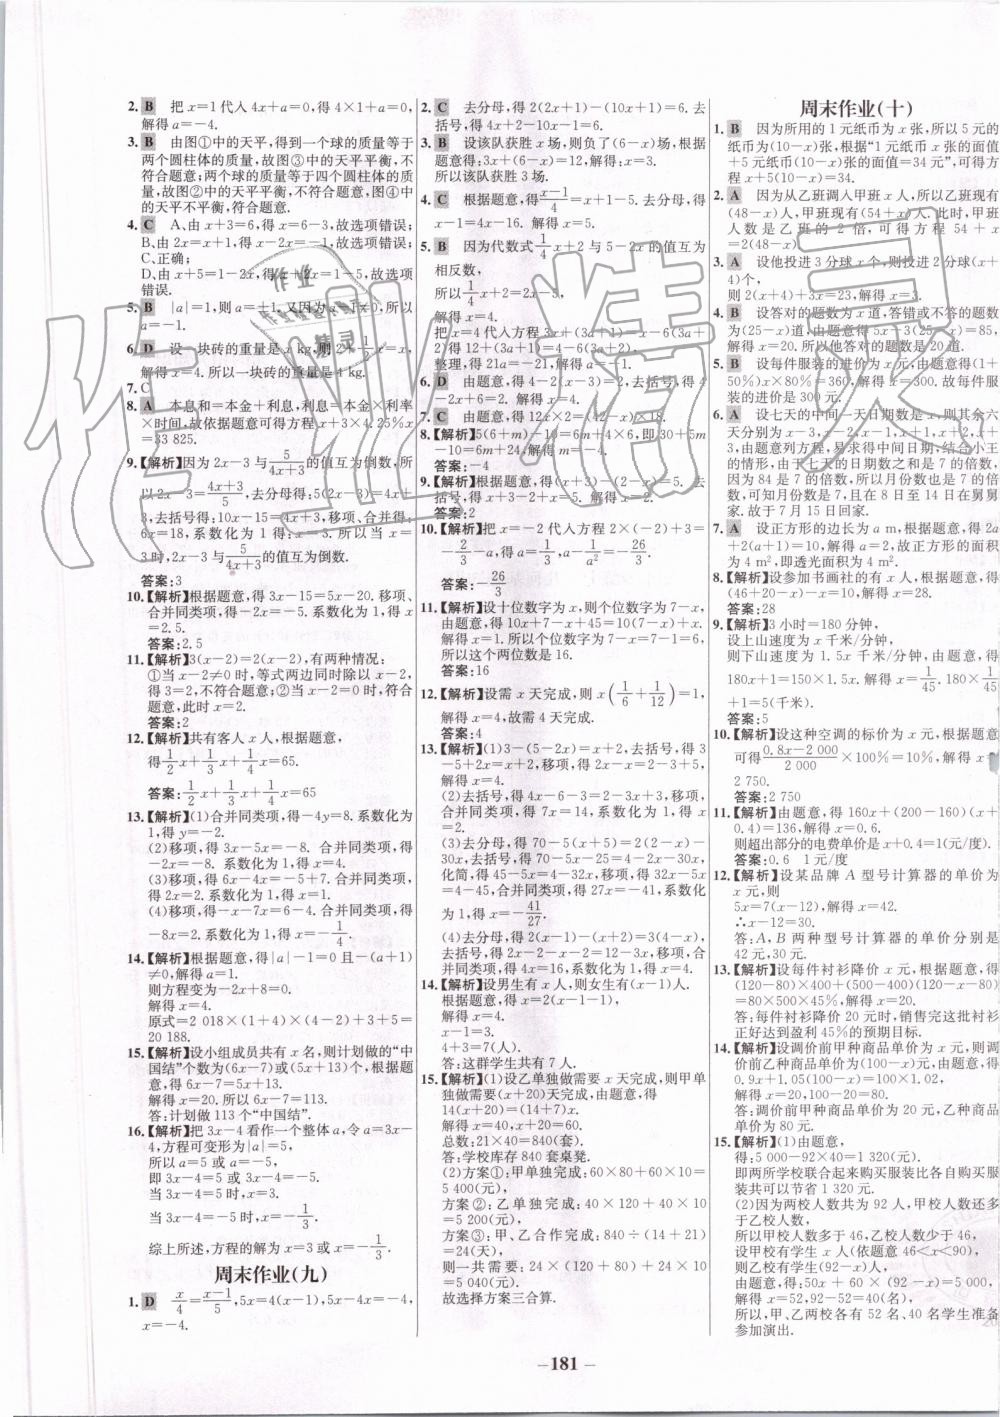 2. B 把 x=1 代入 4x+a=0,得 4×1+a=0,
解得 a=-4.
3. B 由图①中的天平,得到一个球的质量等于
两个圆柱体的质量,故图③中的天平平衡,不
符合题意;两个球的质量等于四个圆柱体的质
量,故图②中的天平平衡,不符合题意,图④中
的天平不平衡,符合题意.
4. C A、由 x+3=6,得 x=6-3,故选项错误;
B、由 2x=x+1,得 2x-x=1,故选项错误;
C、正确;
D、由 2x+x=1,得 2x+x=1,故选项
错误.
5. B |a|=1,则 a=±1,又因为 a-1≠0,所以
a=-1.
6. D 设一块砖的重量是 x kg,则 2+1/2 x=x,
解得 x=4.所以一块砖的重量是 4 kg.
7. C
8. A 本息和=本金+利息,利息=本金×利率
×时间.故依据题意可得方程 x+3×4.25%x
=33 825.
9.【解析】因为 2x-3 与 5/(4x+3) 的值互为倒数,所
以 2x-3=(4x+3)/5,去分母得:5(2x-3)=4x+
3,去括号得:10x-15=4x+3,移项、合并得:
6x=18,系数化为 1 得:x=3.所以当 x=
3时,2x-3 与 5/(4x+3) 的值互为倒数.
答案:3
10.【解析】根据题意,得 3x-15=5x-20.移项、
合并同类项,得-2x=-5.系数化为 1,得
x=2.5.
答案:2.5
11.【解析】3(x-2)=2(x-2),有两种情况:
①当 x-2≠0 时,等式两边同时除以 x-2,
得 3=2,不符合题意;②当 x-2=0 时,符合
题意,此时 x=2.
答案:2
12.【解析】共有客人 x 人,根据题意,
得 1/2 x+1/3 x+1/4 x=65.
答案:1/2 x+1/3 x+1/4 x=65
13.【解析】(1)合并同类项,得-4y=8.系数化为
1,得 y=-2.
(2)移项,得 3x-5x=-8.合并同类项,得
-2x=-8.系数化为 1,得 x=4.
(3)移项,得 6x-4x=-5+7.合并同类项,
得 2x=2.系数化为 1,得 x=1.
(4)移项,得-x-7x=8-6.合并同类项,得
-8x=2.系数化为 1,得 x=-1/4.
14.【解析】根据题意,得|a|-1=0 且-(a+1)
≠0,解得 a=1.
则方程变为-2x+8=0.
解得 x=4.
原式=2 018×(1+4)×(4-2)+3+5=
20 188.
15.【解析】设小组成员共有 x 名,则计划做的“中
国结”个数为(6x-7)或(5x+13)个,根据题
意,得 6x-7=5x+13.
解得 x=20.所以 6x-7=113.
答:计划做 113 个“中国结”.
16.【解析】把 3x-4 看作一个整体 a,令 a=3x-
4,方程可变形为|a|=5,
所以 a=5 或 a=-5,
即 3x-4=5 或 3x-4=-5.
当 3x-4=5 时,x=3,
当 3x-4=-5 时,x=-1/3.
综上所述,方程的解为 x=3 或 x=-1/3.
周末作业(九)
1. D x/4=(x-1)/5,5x=4(x-1),5x-4x=-4,
x=-4.
2. C 去分母,得 2(2x+1)-(10x+1)=6.去
括号,得 4x+2-10x-1=6.
3. B 设该队获胜 x 场,则负了(6-x)场,根据
题意得:3x+(6-x)=12,解得:x=3.
所以该队获胜 3 场.
4. C 根据题意,得(x-1)/4=x+1-5.去分母,得
x-1=4x-16. 解得 x=5.
5. B 因为代数式 1/4 x+2 与 5-2x 的值互为
相反数,
所以 1/4 x+2+5-2x=0,
解得 x=4.
把 x=4 代入方程
整理,得 21a=-21,解得 a=-1.
6. D 由题意,得 4-2(x-3)=x-5,去括号,得 4
-2x+6=2.
7. C 由题意,得 12x×2=
8.【解析】5(6+m)-10=6m+4×6,即 30+5m
-10=6m+24.解得 m=-4.
答案:-4
9.【解析】根据题意,得(x+3)-(2-x)=5.去
括号,得 x+3-2+x=5. 解得 x=2.
答案:2
10.【解析】把 x=-2 代入方程 2×(-2)+3=
-2/3-a,得 a=1/3,a-1/a²=1/3-9=
-26/3.
答案:-26/3
11.【解析】设十位数字为 x,则个位数字为 7-x,
由题意,得 10x+7-x+45=10(7-x)+x.
解得 x=1.所以个位数字为 7-x=7-1=6,
所以这个两位数是 16.
答案:16
12.【解析】设需 x 天完成,则 x(1/6+1/12)=1,
解得 x=4,故需 4 天完成.
答案:4
13.【解析】(1)3-(5-2x)=x+2,去括号,得 3
-5+2x=x+2,移项,得 2x-x=2-3+5,
解得 x=4.
(2)去括号,得 4x-6-3=2-3x+3,移项,
合并同类项,得 7x=14,系数化为 1,得 x
=2.
(3)去分母,得 70-5(x+5)=2(2-x)-
30x,去括号,得 70-5x-25=4-2x-30x,
化简,得 45-5x=4-32x,移项,得 32x-5x
=4-45,合并同类项,得 27x=-41,系数化
为 1,得 x=-41/27.
(4)去分母,得 2(x-1)-(x+2)=3(4-x),
去括号,得 2x-2-x-2=12-3x,移项,合
并同类项,得 4x=16,系数化为 1,得 x=4.
14.【解析】设男生有 x 人,则女生有(x-1)人.
根据题意,得 x=2(x-1-1),
解得 x=4.
x-1=3.
4+3=7(人).
答:这群学生共有 7 人.
15.【解析】(1)设乙单独做需要 x 天完成,则甲单
独做需要(x+7)天完成,由题意,得
14(x+20)=(14+7)x.
解得 x=40.
总数:21×40=840(套).
答:学校库存 840 套桌凳.
(2)方案①:甲单独完成:60×80+60×10=
5 400(元),
方案②:乙单独完成:40×120+40×10
=5 200(元),
方案③:甲、乙合作完成:840÷(14+21)
=24(天),
则一共需要:24×(120+80)+24×10
=5 040(元).
故选择方案三合算.
周末作业(十)
1. B 因为所用的 1 元纸币为 x 张,所以 5 元的
纸币为(10-x)张,根据“1 元纸币 x 张的面值
+5 元纸币(10-x)张的面值=34 元”,可得方
程 x+5(10-x)=34.
2. A 因为从乙班调入甲班 x 人,所以乙班现有
(48-x)人,甲班现有(54+x)人.此时,甲班
人数是乙班的 2 倍,可得方程 54+x
=2(48-x)
3. A 设他投进 3 分球 x 个,则投进 2 分球(x+
4)个,
则 2(x+4)+3x=23,解得 x=3.
4. B 设答对的题数为 x 道,答错或不答的题数
为(25-x)道,由题意得 5x+3(25-x)=
解得 x=20.所以他答对的题数是 20 道.
5. B 设每件服装的进价为 x 元,由题意得(1+
50%)x×80%=360,解得 x=300.故每件服
装的进价是 300 元.
6. A 设七天的中间一天日期数是 x,则其余六
天分别为 x-3,x-2,x-1,x+1,x+2,x+
3,由题意得,易求得中间日期,结合小王
的情形,由于七天的日期数之和是 7 的倍数,
因为 84 是 7 的倍数,所以月份数也是 7 的倍
数,可知月份数是 7,且在 8 日至 14 日在舅舅
家.故于 7 月 15 日回家.
7. A 设正方形的边长为 a m,根据题意,得 2a
+2(a+1)=10,解得 a=2,故正方形的面积
为 4 m²,即透光面积为 4 m².
8.【解析】设参加书画社的有 x 人,根据题意,得
(46+20-x)-x=10,解得 x=28.
答案:28
9.【解析】3 小时=180 分钟,
设上山速度为 x 千米/分钟,
则下山速度为 1.5x 千米/分钟,由题意,得
180x+1=150×1.5x. 解得 x=1/45. 180×1/45
+1=5(千米).
答案:5
10.【解析】设这种空调的标价为 x 元,根据题意
可得(0.8x-2 000)/2 000×100%=10%,解得 x=
2 750.
答案:2 750
11.【解析】由题意,得 160x+(200-160)(x+
0.4)=136,解得 x=0.6.
则超出部分的电费单价是 x+0.4=1(元/度).
答案:0.6 1 元/度
12.【解析】设某品牌 A 型号计算器的单价为
x 元,则
5x=7(x-12),解得 x=42.
∴x-12=30.
答:A,B 两种型号计算器的单价分别是
42 元,30 元.
13.【解析】设每件衬衫降价 x 元,根据题意,得
(120-80)×400+(500-400)(120-x-80)
=80×500×45%,解得 x=20.
答:每件衬衫降价 20 元时,销售完这批衬衫
正好达到盈利 45%的预期目标.
14.【解析】设调价前甲种商品单价为 x 元,则调
价前乙种商品单价为(100-x)元,由题意,得
0.9x+1.05(100-x)=100×1.02,
解得 x=20,100-20=80.
答:调价前甲种商品单价为 20 元,乙种商品
单价为 80 元.
15.【解析】(1)由题意,
得:5 000-92×40=1 320(元).
即两所学校联合起来购买服装比各自购买服
装共可以节省 1 320 元.
(2)因为两校人数共为 92,甲校人数还多
于乙校人数,
所以,甲校人数多于 46,乙校人数少于 46,
设甲校有学生 x 人(依题意 46<x<90),
则乙校有学生(92-x)人,
由题意,得:50x+60×(92-x)=5 000,
解得 x=52,92-52=40(名),
所以,甲、乙两校各有 52 名、40 名学生准备
参加演出.
-181-
作业精灵